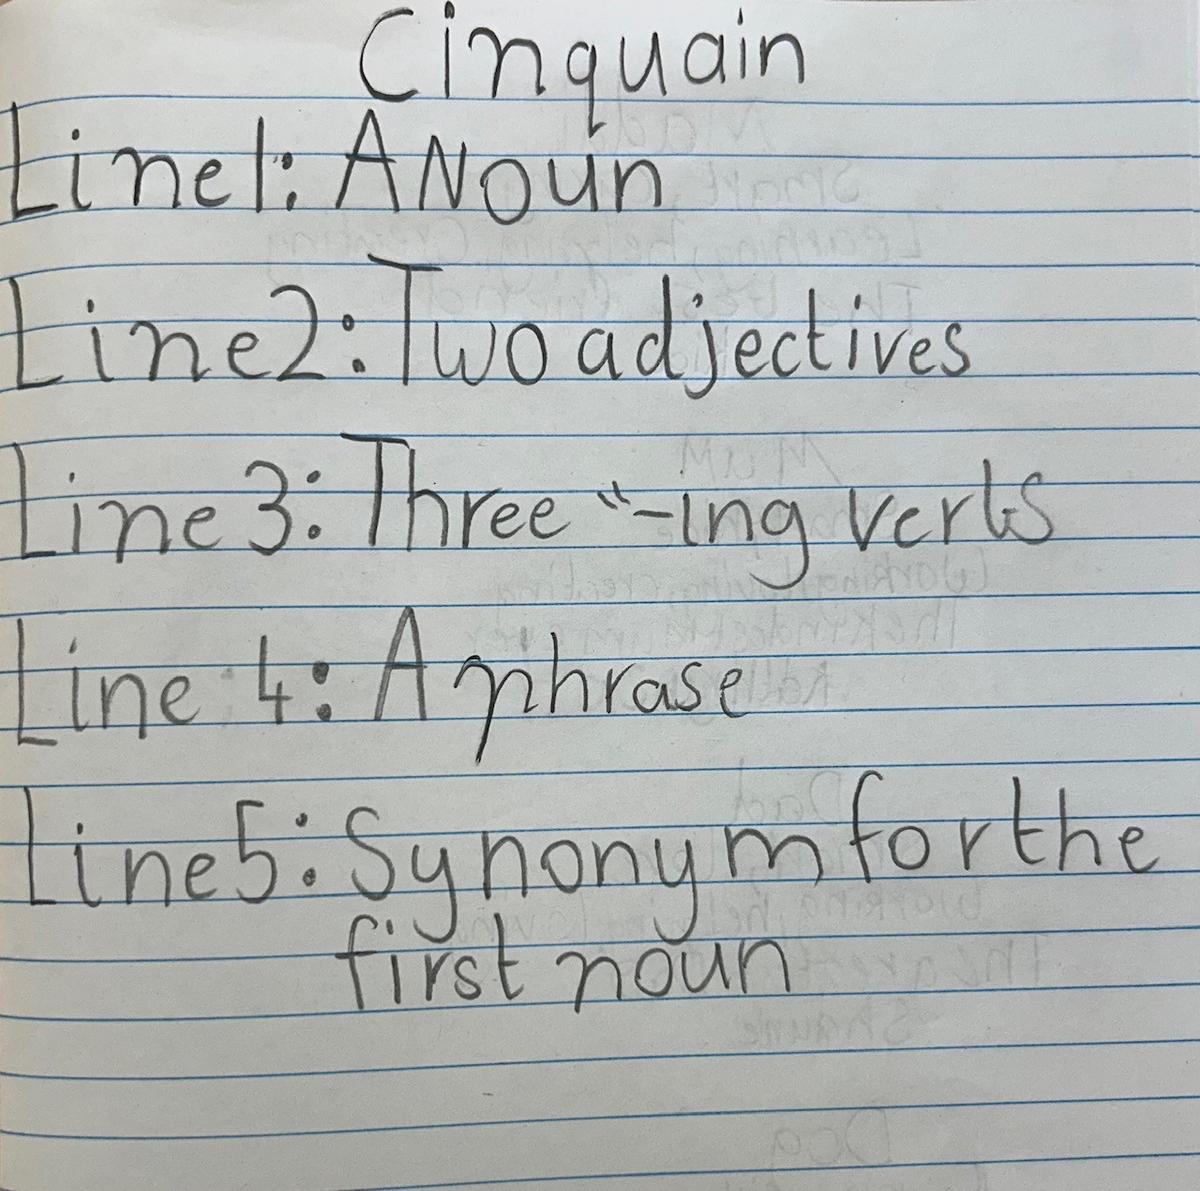 Cinquain
Line1: A Noun
Line2: Two adjectives
Line 3: Three "-ing verbs
Line 4: A phrase
Line5: Synonym for the
first noun